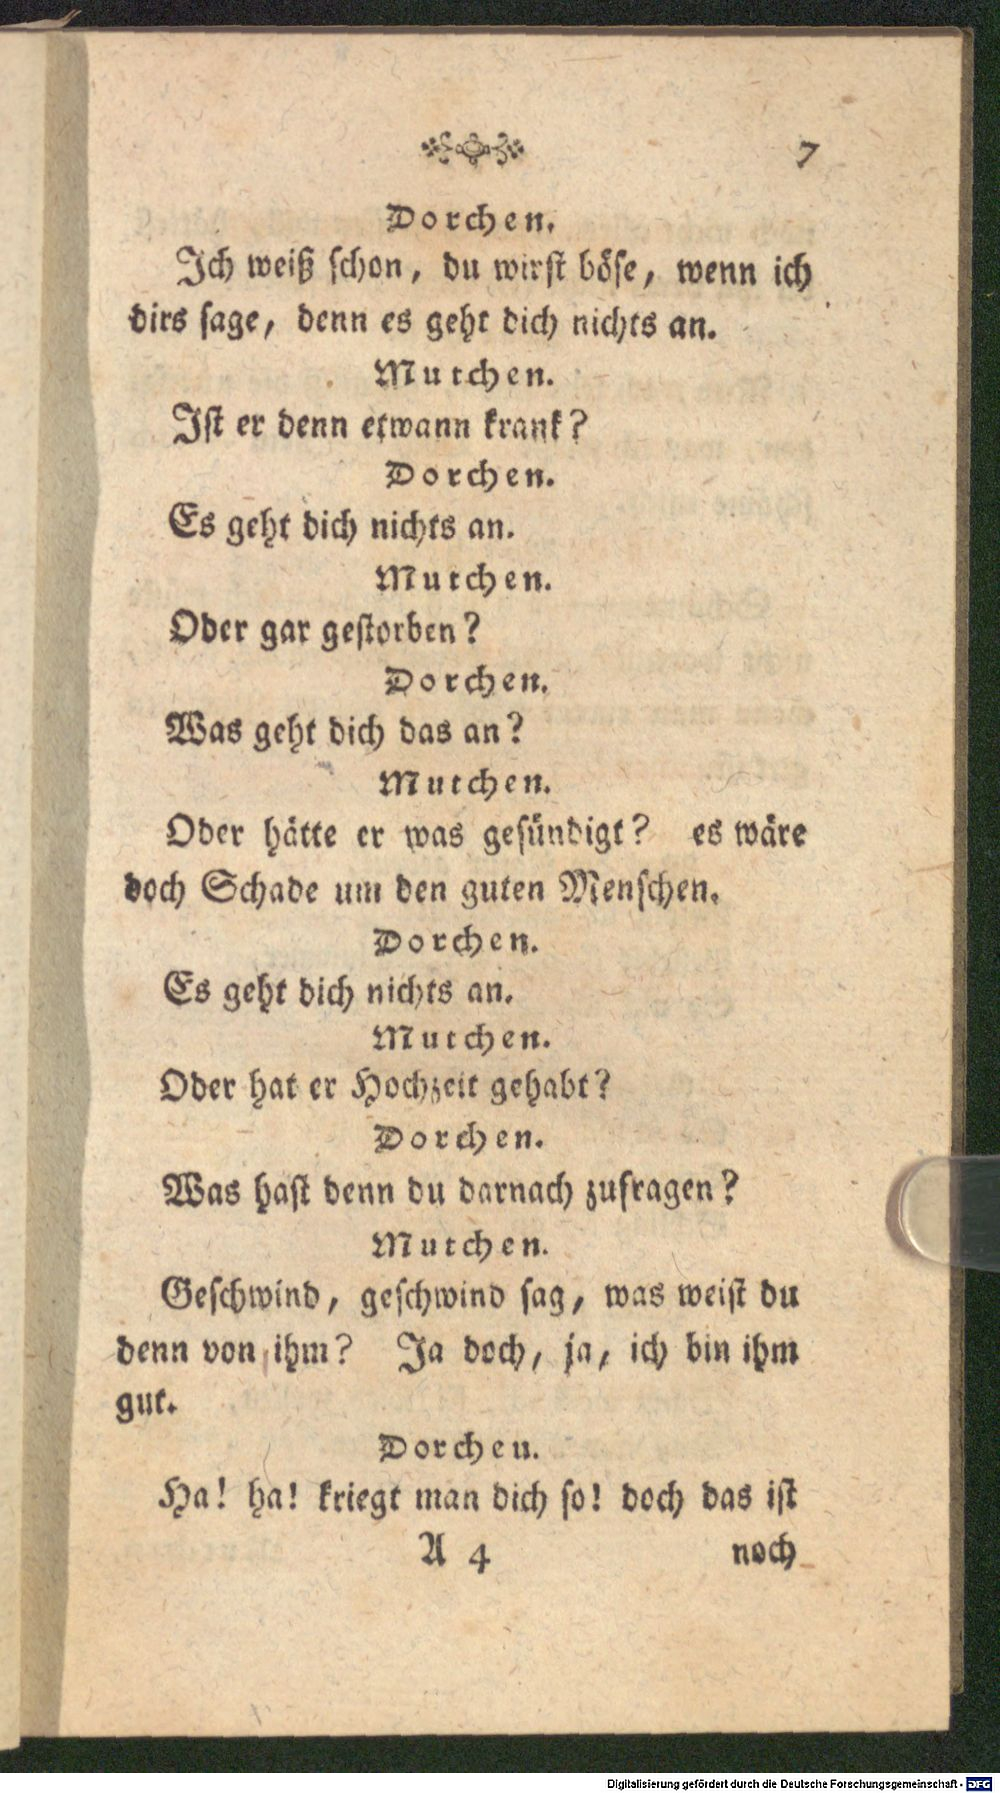 7
Dorchen.
Ich weiß schon, du wirst böse, wenn ich
dirs sage, denn es geht dich nichts an.
Mutchen.
Ist er denn etwann krank?
Dorchen.
Es geht dich nichts an.
Mutchen.
Oder gar gestorben?
Dorchen.
Was geht dich das an?
Mutchen.
Oder hätte er was gesündigt? es wäre
doch Schade um den guten Menschen.
Dorchen.
Es geht dich nichts an.
Mutchen.
Oder hat er Hochzeit gehabt?
Dorchen.
Was hast denn du darnach zufragen?
Mutchen.
Geschwind, geschwind sag, was weist du
denn von ihm? Ja doch, ja, ich bin ihm
gut.
Dorchen.
Ha! ha! kriegt man dich so! doch das ist
A 4 noch
Digitalisierung gefördert durch die Deutsche Forschungsgemeinschaft - DFG